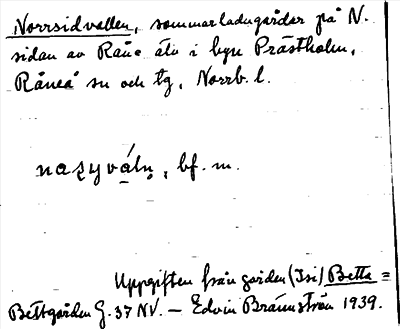 Norrsidvallen, sommarladugårdar på N.
sidan av Råne älv i byn Prästholm,
Råneå sn och tg, Norrb. l.
naʂyválṇ, bf. m.
Uppgiften från gården (Isi) Betta =
Bettgården G. 37 NV. — Edvin Brännström 1939.